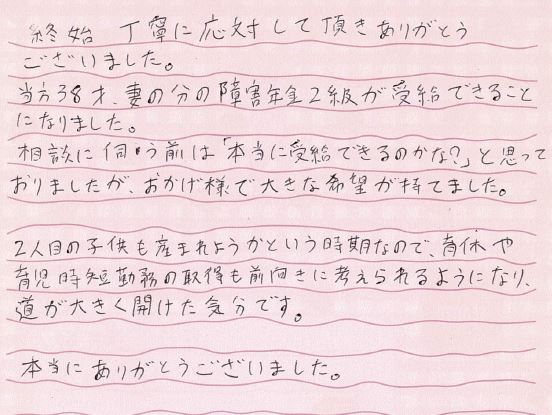 終始 丁寧に応対して頂きありがとう
ございました。
当方38才、妻の分の障害年金2級が受給できること
になりました。
相談に伺う前は「本当に受給できるのかな?」と思って
おりましたが、おかげ様で大きな希望が持てました。
2人目の子供も産まれようかという時期なので、育休や
育児時短勤務の取得も前向きに考えられるようになり、
道が大きく開けた気分です。
本当にありがとうございました。